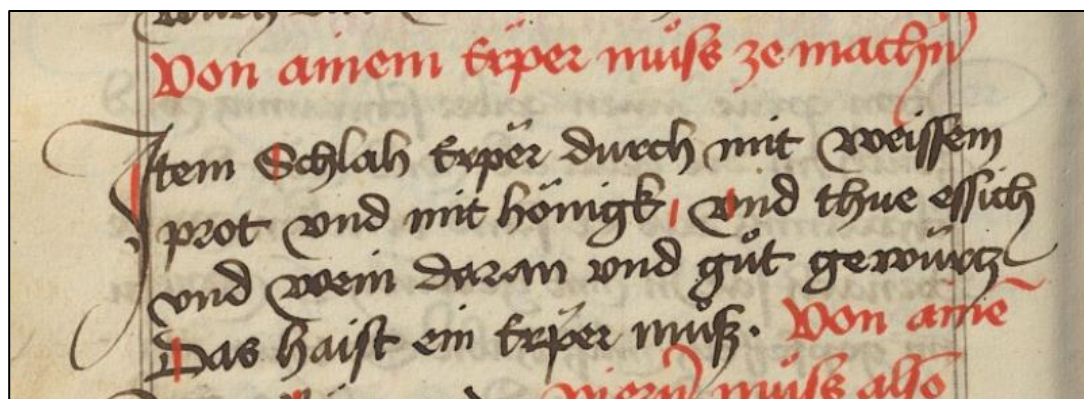 Von ainem Erper můss ze machn
Item Schlah Erper durch mit weissem
prot vnd mit hönigk vnd thue essich
vnd wein daran vnd gůt gewürtz
Das haist ein Erper můß. Von aīnē
müss also